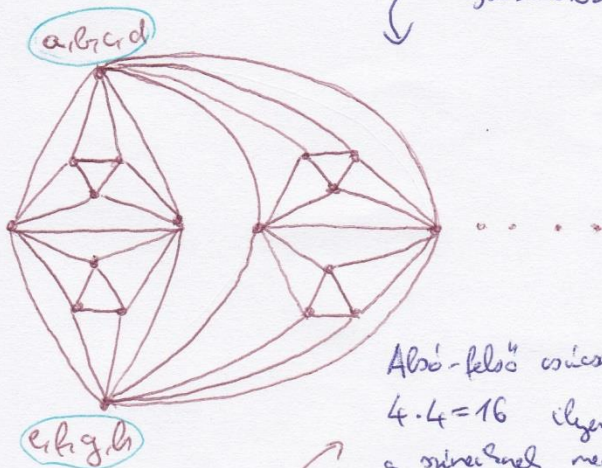 a,b,c,d
Alsó-felső csúcs
4·4=16 ilyen
a színeknek me
e,f,g,h